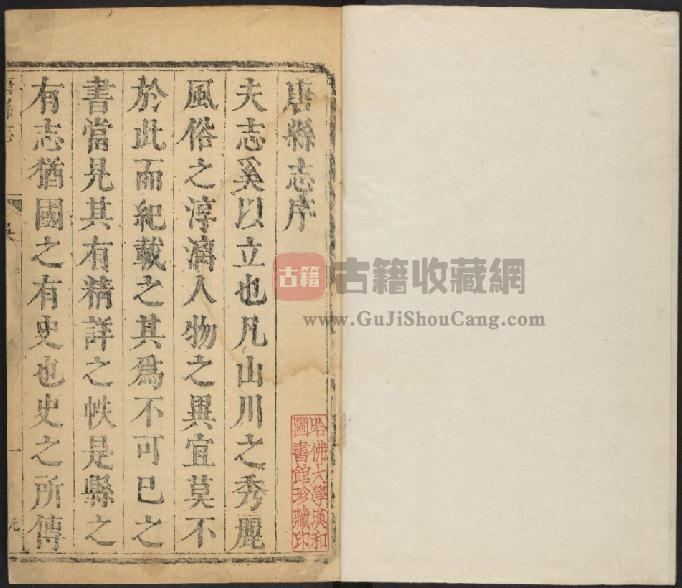 唐縣志序
夫志奚以立也凡山川之秀麗
風俗之淳漓人物之異宜莫不
於此而紀載之其爲不可已之
書當見其有精詳之帙是縣之
有志猶國之有史也史之所傳
哈佛大學漢和
圖書館珍藏印
古籍
古籍收藏網
www.GuJiShouCang.com